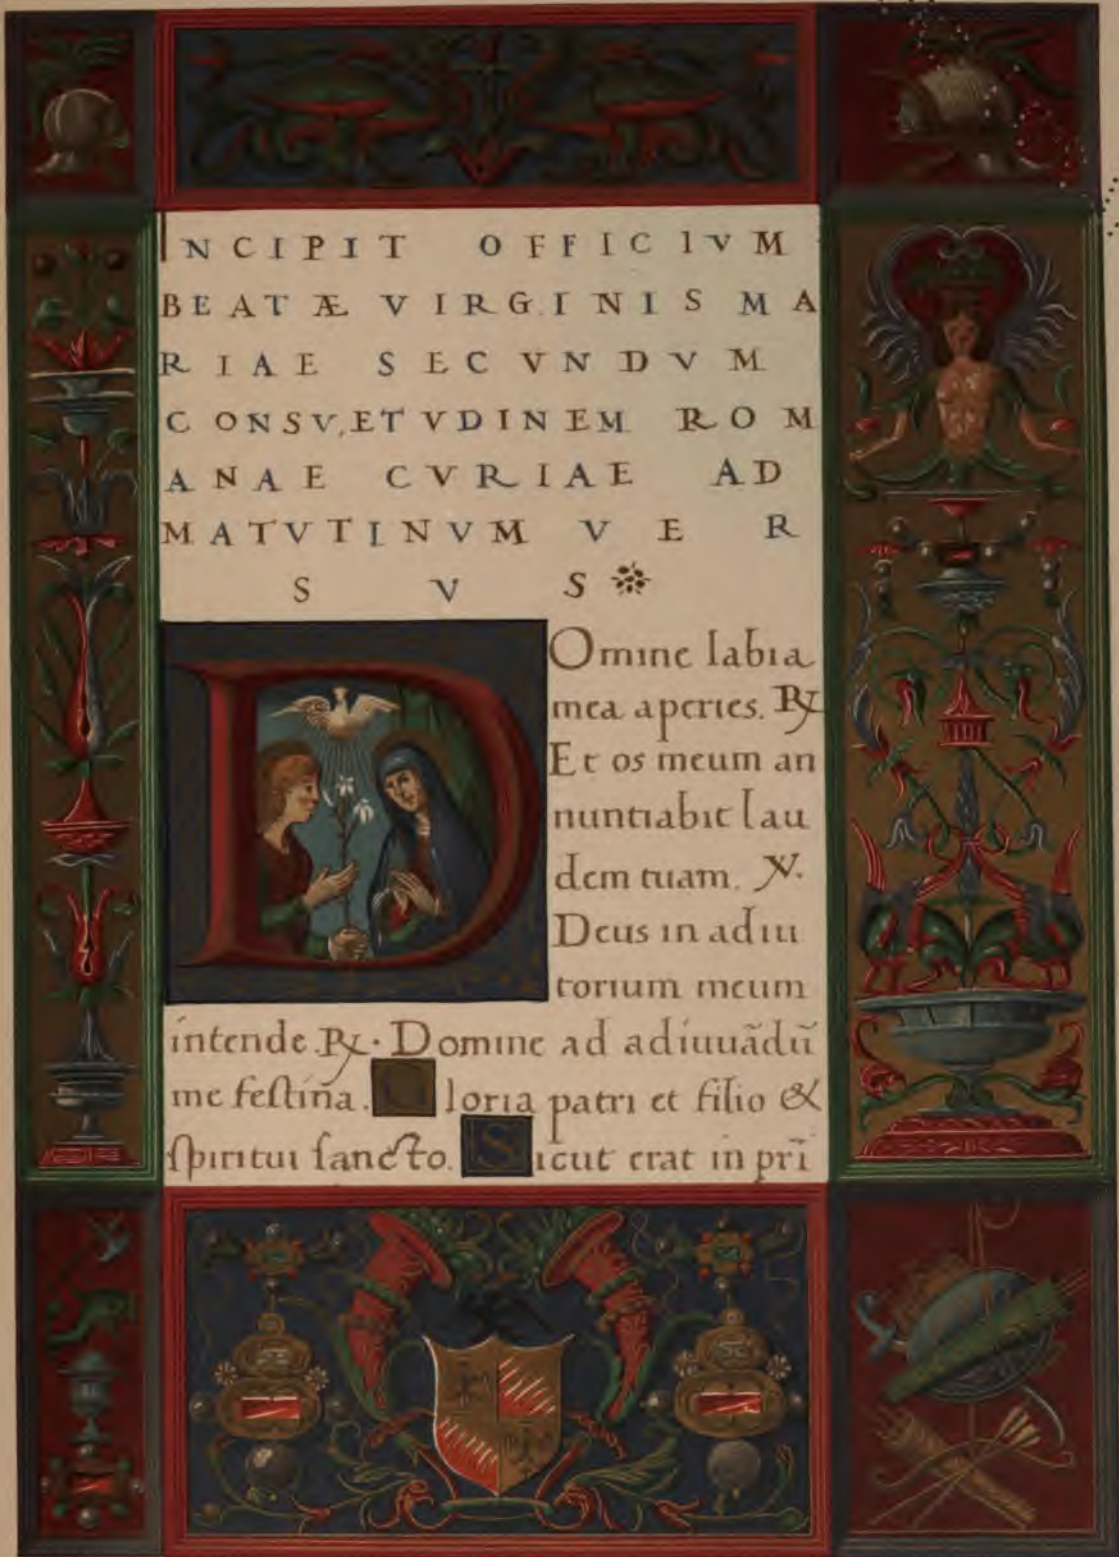 INCIPIT OFFICIVM
BEATÆ VIRGINIS MA
RIAE SECVNDVM
CONSVETVDINEM ROM
ANAE CVRIAE AD
MATVTINVM VER
SVS
DOmine labia
mea aperies. ℟
Et os meum an
nuntiabit lau
dem tuam. ℣.
Deus in adiu
torium meum
intende ℟. Domine ad adiuuãdũ
me feſtina. Gloria patri et filio &
ſpiritui ſancto. Sicut erat in pri̅